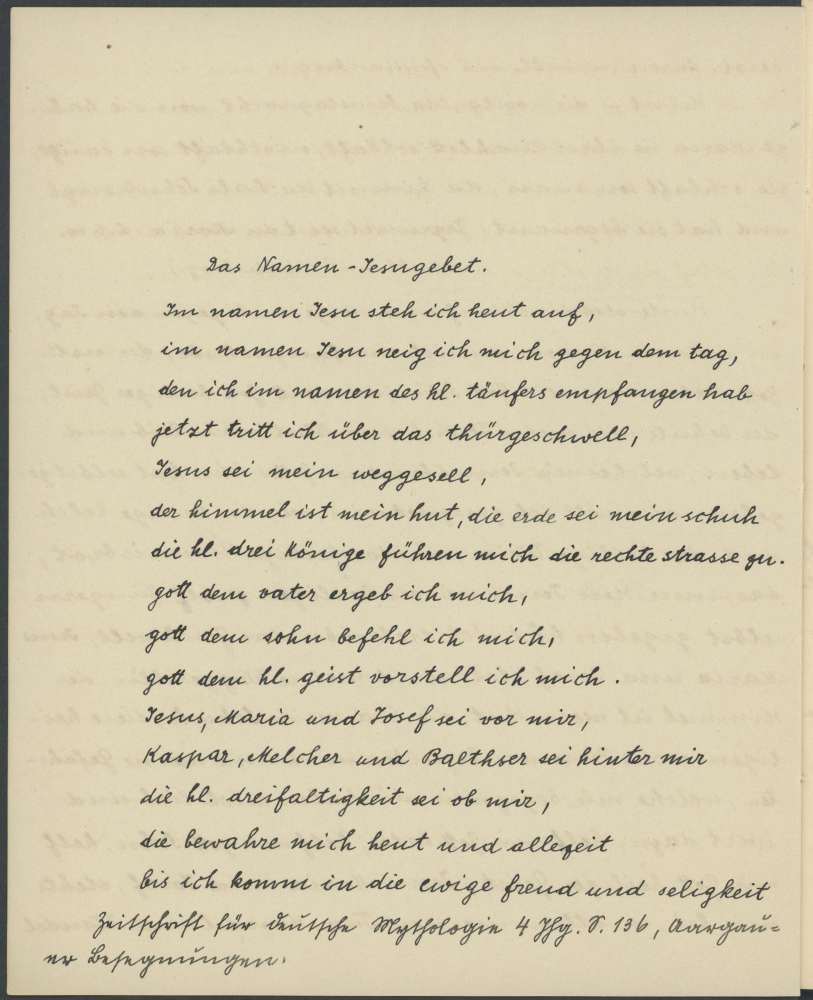 Das Namen-Jesugebet.
Im namen Jesu steh ich heut auf,
im namen Jesu neig ich mich gegen dem tag,
den ich im namen des hl. täufers empfangen hab
jetzt tritt ich über das thürgeschwell,
Jesus sei mein weggesell,
der himmel ist mein hut, die erde sei mein schuh
die hl. drei Könige führen mich die rechte strasse zu.
gott dem vater ergeb ich mich,
gott dem sohn befehl ich mich,
gott dem hl. geist vorstell ich mich.
Jesus, Maria und Josef sei vor mir,
Kaspar, Melcher und Balthser sei hinter mir
die hl. dreifaltigkeit sei ob mir,
die bewahre mich heut und allezeit
bis ich komm in die ewige freud und seligkeit
Zeitschrift für deutsche Mythologie 4 Jhg. S. 136, Aargau=
er Besegnungen.